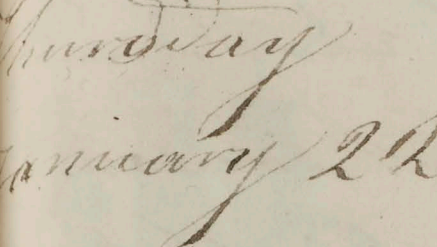 Thursday
January 22